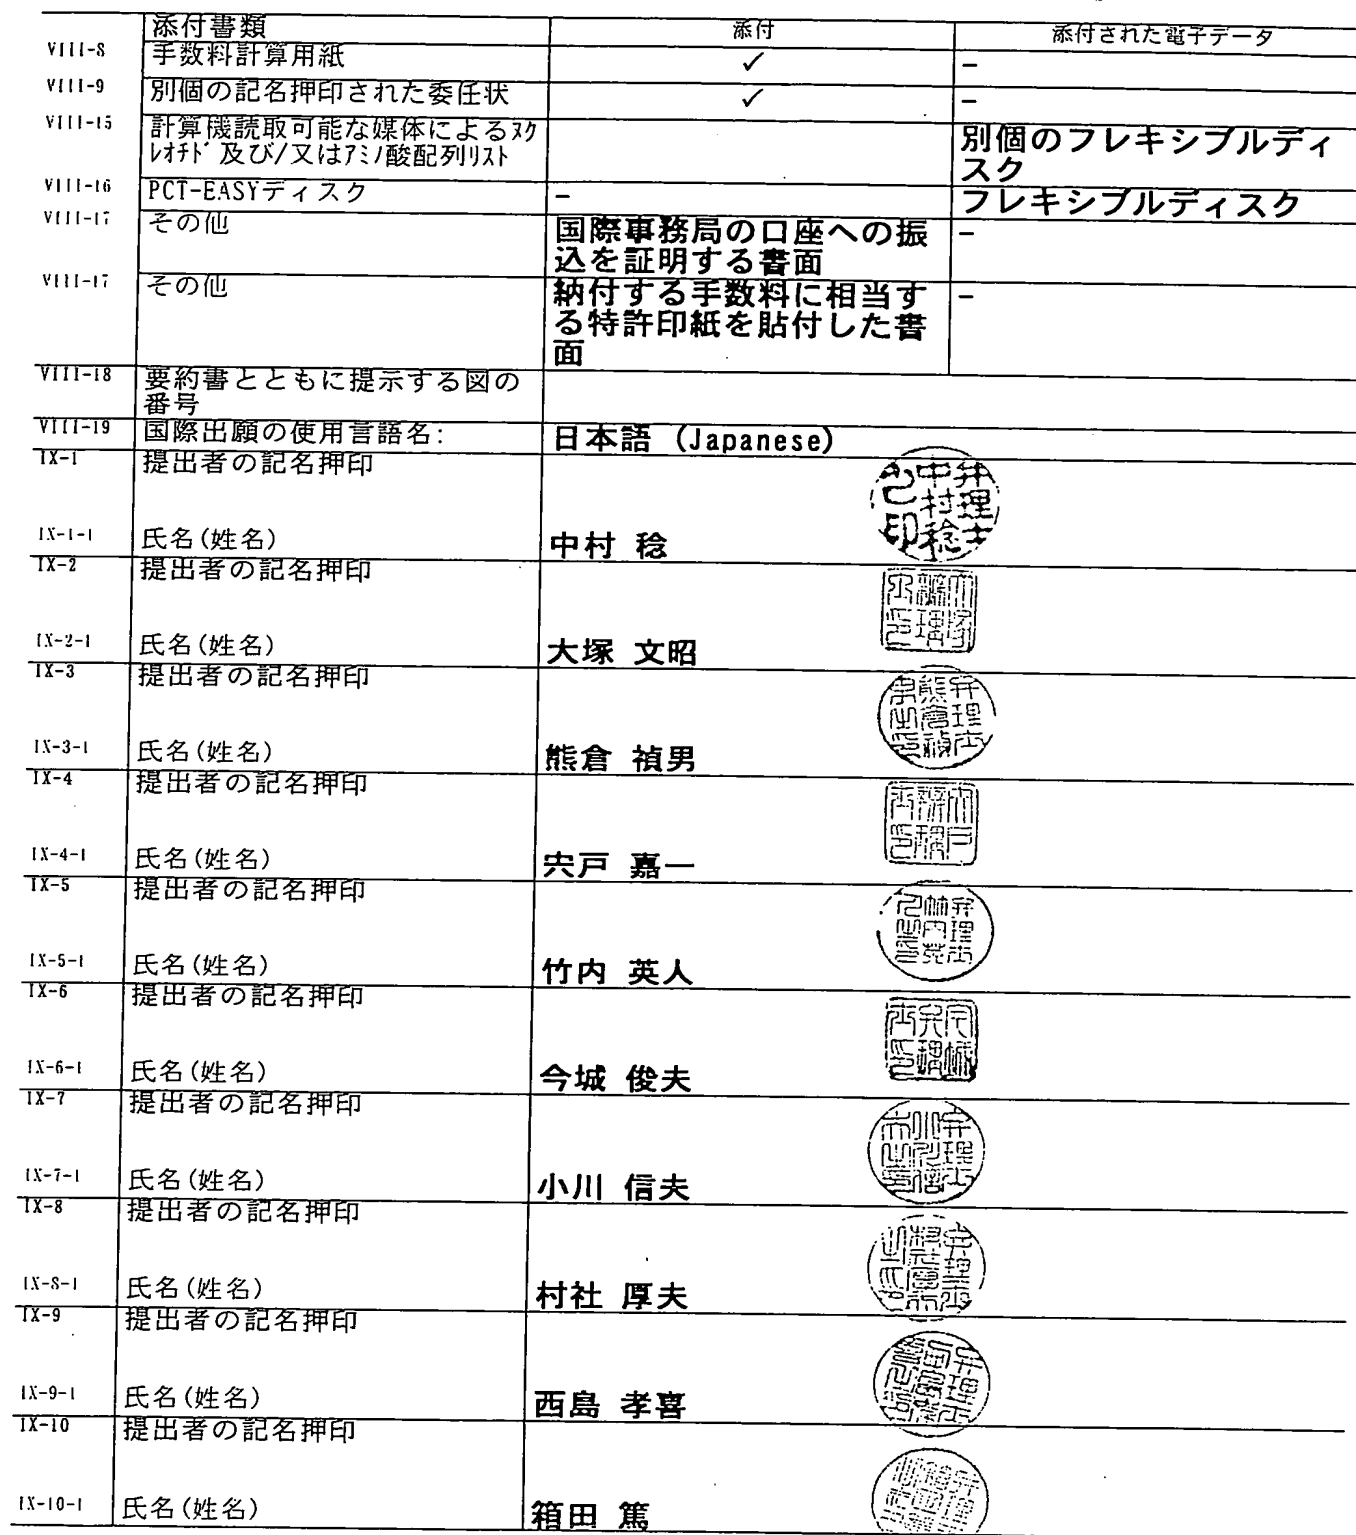 添付書類 添付 添付された電子データ
VIII-8 手数料計算用紙 ✓ −
VIII-9 別個の記名押印された委任状 ✓ −
VIII-15 計算機読取可能な媒体によるヌク 別個のフレキシブルディ
レオチド及び/又はアミノ酸配列リスト スク
VIII-16 PCT-EASYディスク − フレキシブルディスク
VIII-17 その他 国際事務局の口座への振 −
込を証明する書面
VIII-17 その他 納付する手数料に相当す −
る特許印紙を貼付した書
面
VIII-18 要約書とともに提示する図の
番号
VIII-19 国際出願の使用言語名: 日本語 (Japanese)
IX-1 提出者の記名押印
IX-1-1 氏名(姓名) 中村 稔
IX-2 提出者の記名押印
IX-2-1 氏名(姓名) 大塚 文昭
IX-3 提出者の記名押印
IX-3-1 氏名(姓名) 熊倉 禎男
IX-4 提出者の記名押印
IX-4-1 氏名(姓名) 宍戸 嘉一
IX-5 提出者の記名押印
IX-5-1 氏名(姓名) 竹内 英人
IX-6 提出者の記名押印
IX-6-1 氏名(姓名) 今城 俊夫
IX-7 提出者の記名押印
IX-7-1 氏名(姓名) 小川 信夫
IX-8 提出者の記名押印
IX-8-1 氏名(姓名) 村社 厚夫
IX-9 提出者の記名押印
IX-9-1 氏名(姓名) 西島 孝喜
IX-10 提出者の記名押印
IX-10-1 氏名(姓名) 箱田 篤